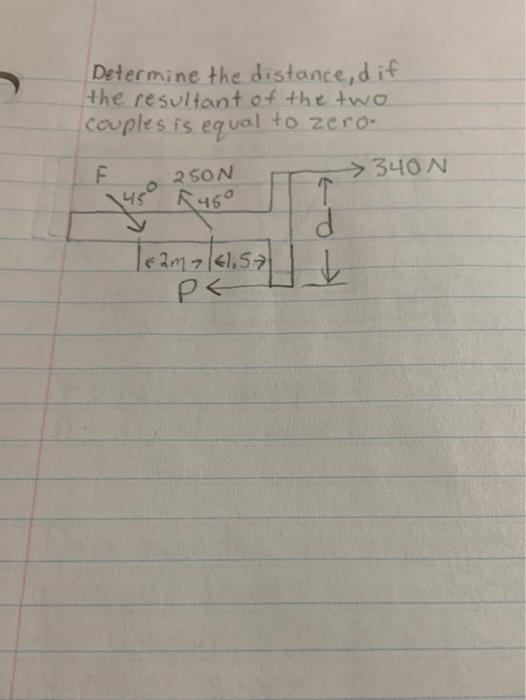 Determine the distance, d if
the resultant of the two
couples is equal to zero.
F 250N → 340N
45° 45°
d
2m 1,5
P